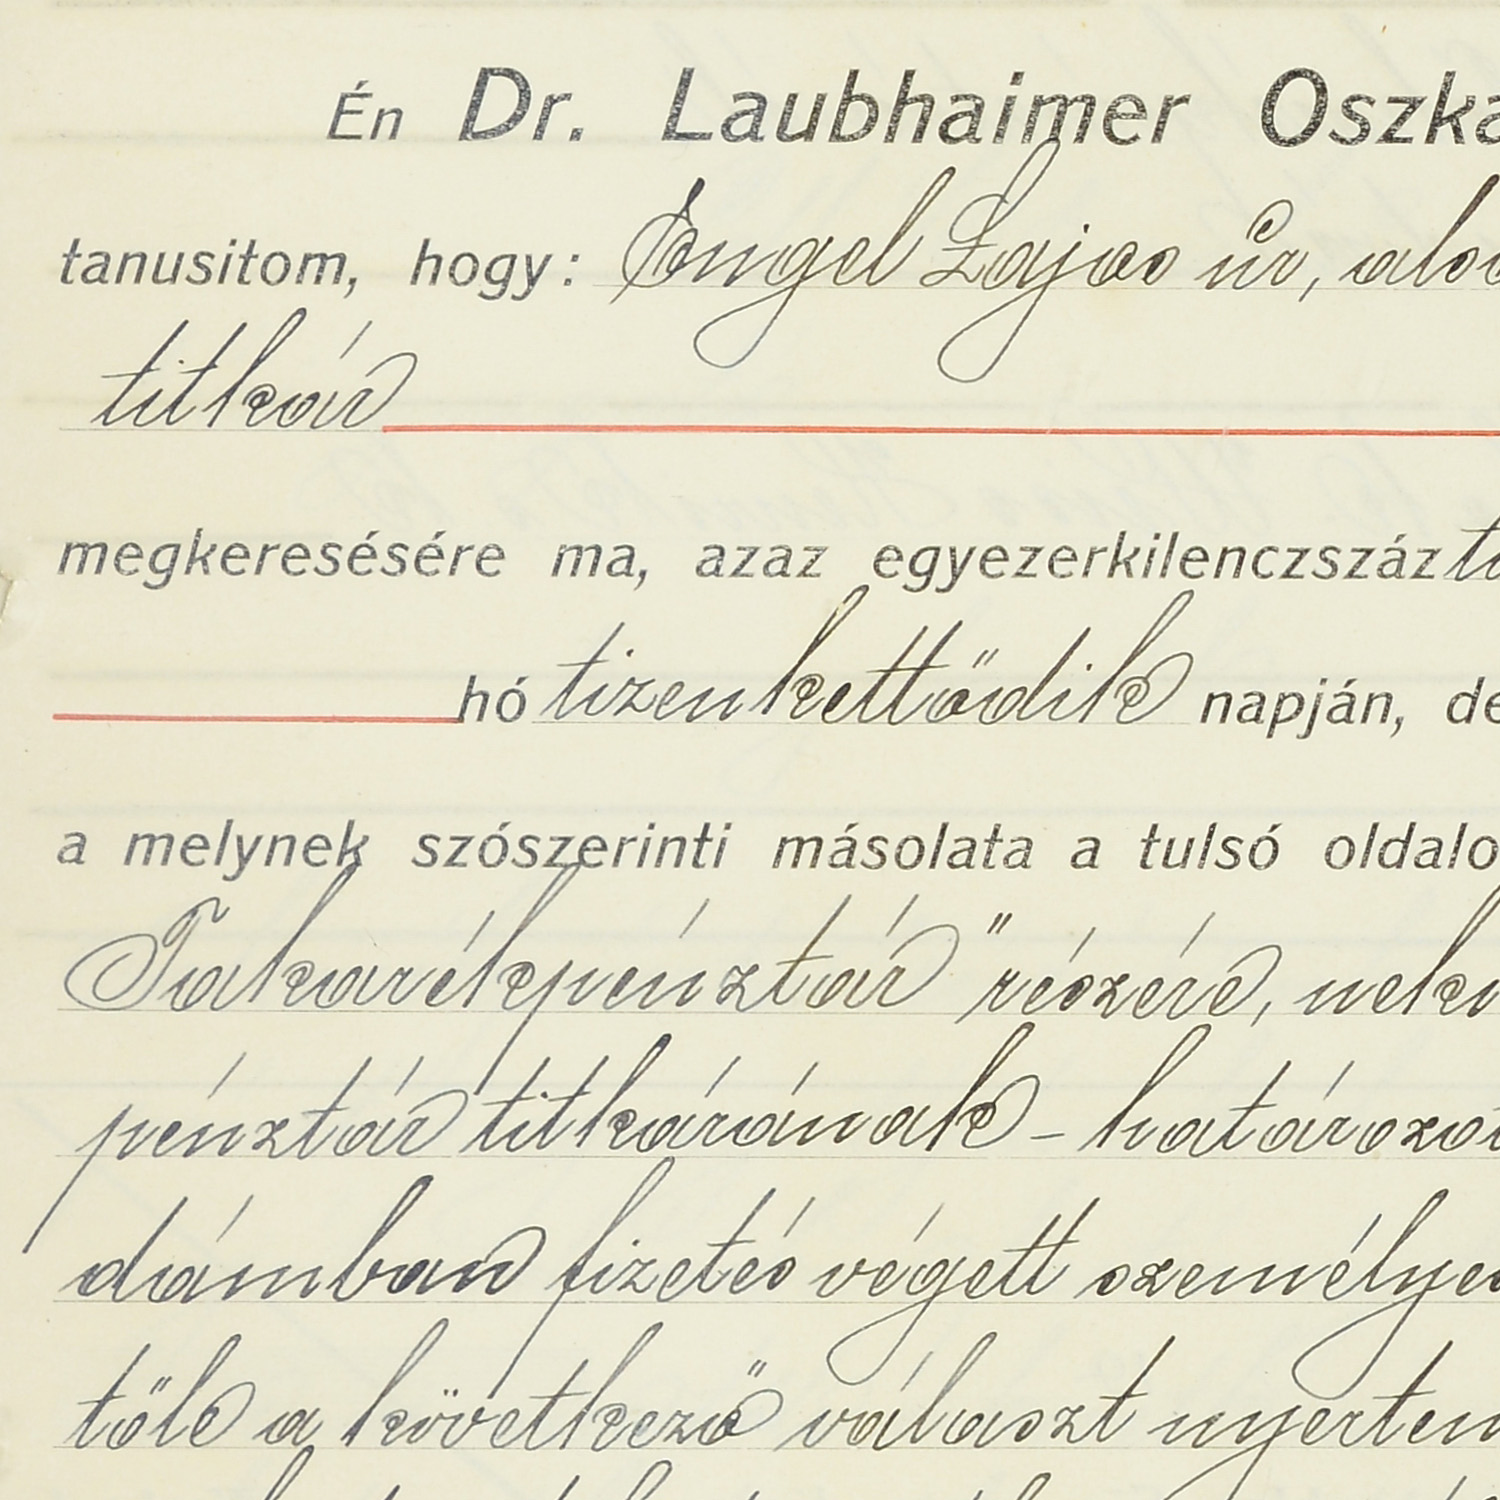 Én Dr. Laubhaimer Oszká
tanusitom, hogy: Engel Lajos úr,
titkár
megkeresésére ma, azaz egyezerkilenczszáz
hó tizenkettödik napján, de
a melynek szószerinti másolata a tulsó oldalo
Takarékpénztár" részére, neki
pénztár titkárának - határozot
dámban fizetés végett személyes
tőle a következő választ nyertem